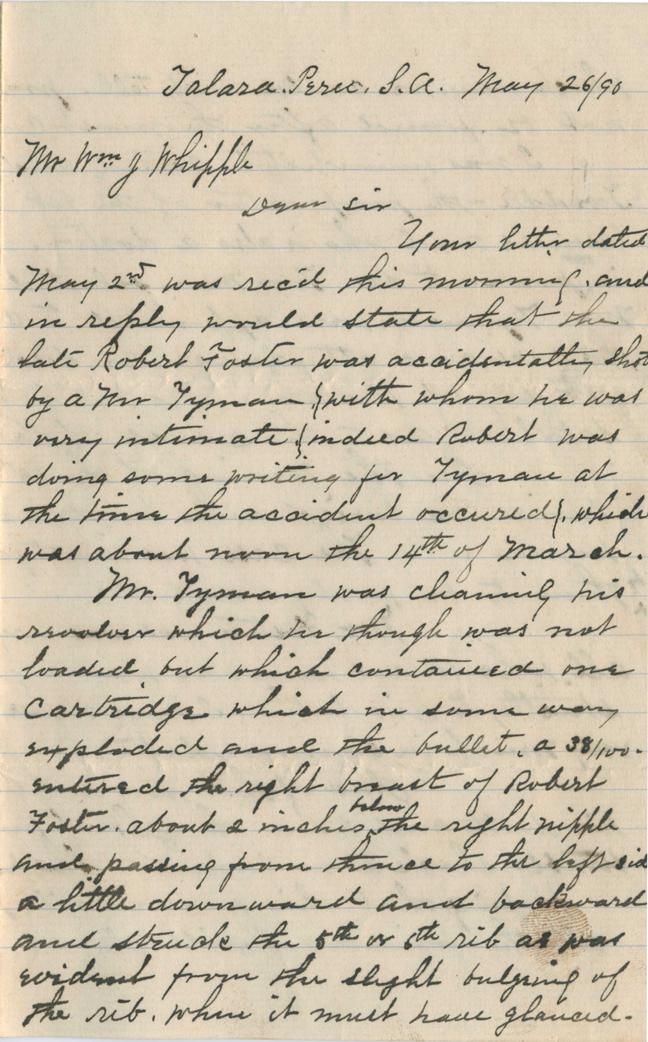 Talara. Peru. S.A. May 26/90
Mr Wm J Whipple
Dear Sir
Your letter dated
May 2nd was rec'd this morning. and
in reply would state that the
late Robert Foster was accidentally shot
by a Mr Tyman {with whom he was
very intimate} indeed Robert was
doing some writing for Tyman at
the time the accident occured}. which
was about noon the 14th of March.
Mr. Tyman was cleaning his
revolver which he though was not
loaded but which contained one
Cartridge which in some way
exploded and the bullet. a 38/100.
entered the right breast of Robert
Foster. about 2 inches below the right nipple
and passing from thence to the left sid
a little downward and backward
and struck the 5th or 6th rib as was
evident from the slight bulging of
the rib. when it must have glanced.